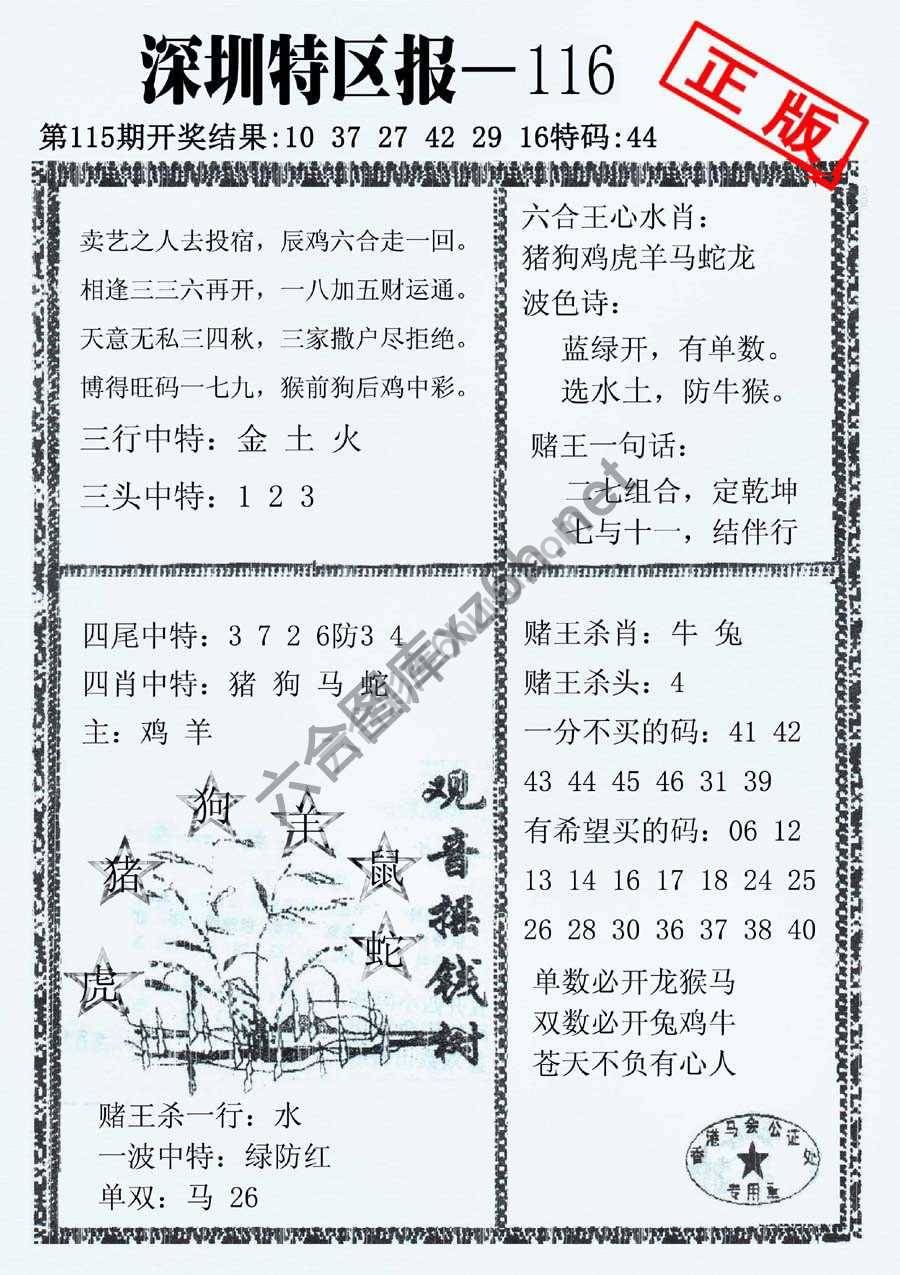 深圳特区报—116
正版
第115期开奖结果:10 37 27 42 29 16特码:44
卖艺之人去投宿，辰鸡六合走一回。
相逢三三六再开，一八加五财运通。
天意无私三四秋，三家撒户尽拒绝。
博得旺码一七九，猴前狗后鸡中彩。
三行中特：金 土 火
三头中特：1 2 3
六合王心水肖：
猪狗鸡虎羊马蛇龙
波色诗：
蓝绿开，有单数。
选水土，防牛猴。
赌王一句话：
二七组合，定乾坤
七与十一，结伴行
四尾中特：3 7 2 6防3 4
四肖中特：猪 狗 马 蛇
主：鸡 羊
狗
羊
猪
鼠
蛇
虎
观音摇钱树
赌王杀一行：水
一波中特：绿防红
单双：马 26
赌王杀肖：牛 兔
赌王杀头：4
一分不买的码：41 42
43 44 45 46 31 39
有希望买的码：06 12
13 14 16 17 18 24 25
26 28 30 36 37 38 40
单数必开龙猴马
双数必开兔鸡牛
苍天不负有心人
香港马会公证处
专用章
六合图库xz6h.net